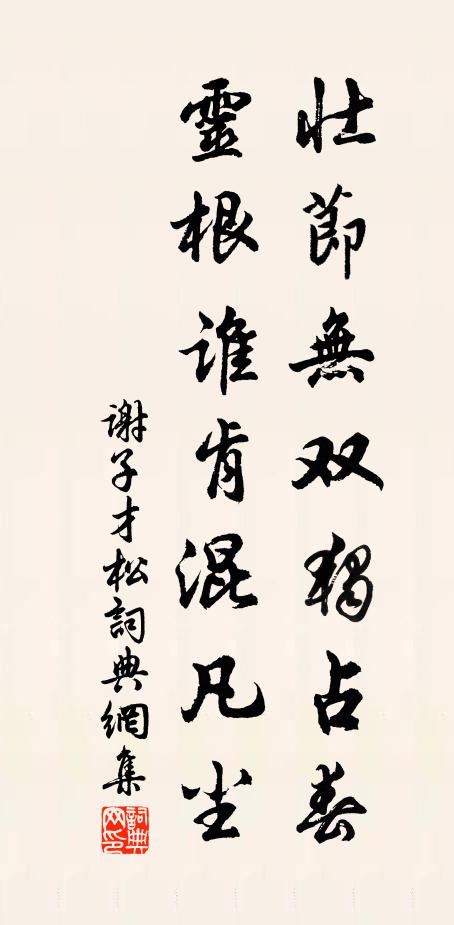 壮節無双獨占春
靈根谁肯混凡尘
谢子才松詞典網集
詞典网印